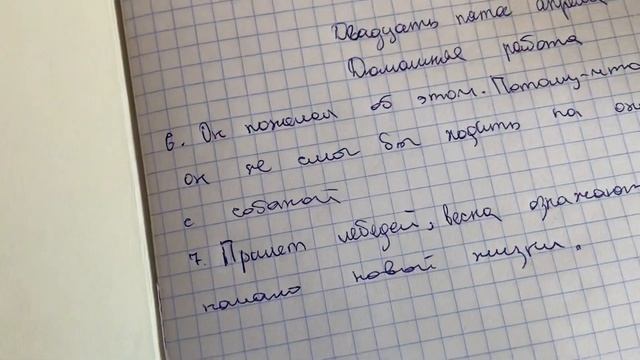 Двадцать пятое апреля
Домашная работа
6. Он пожалел об этом. Потому-что
он не смог бы ходить на ох
с собакой
7. Прилет лебедей, весна означают
начало новой жизни.